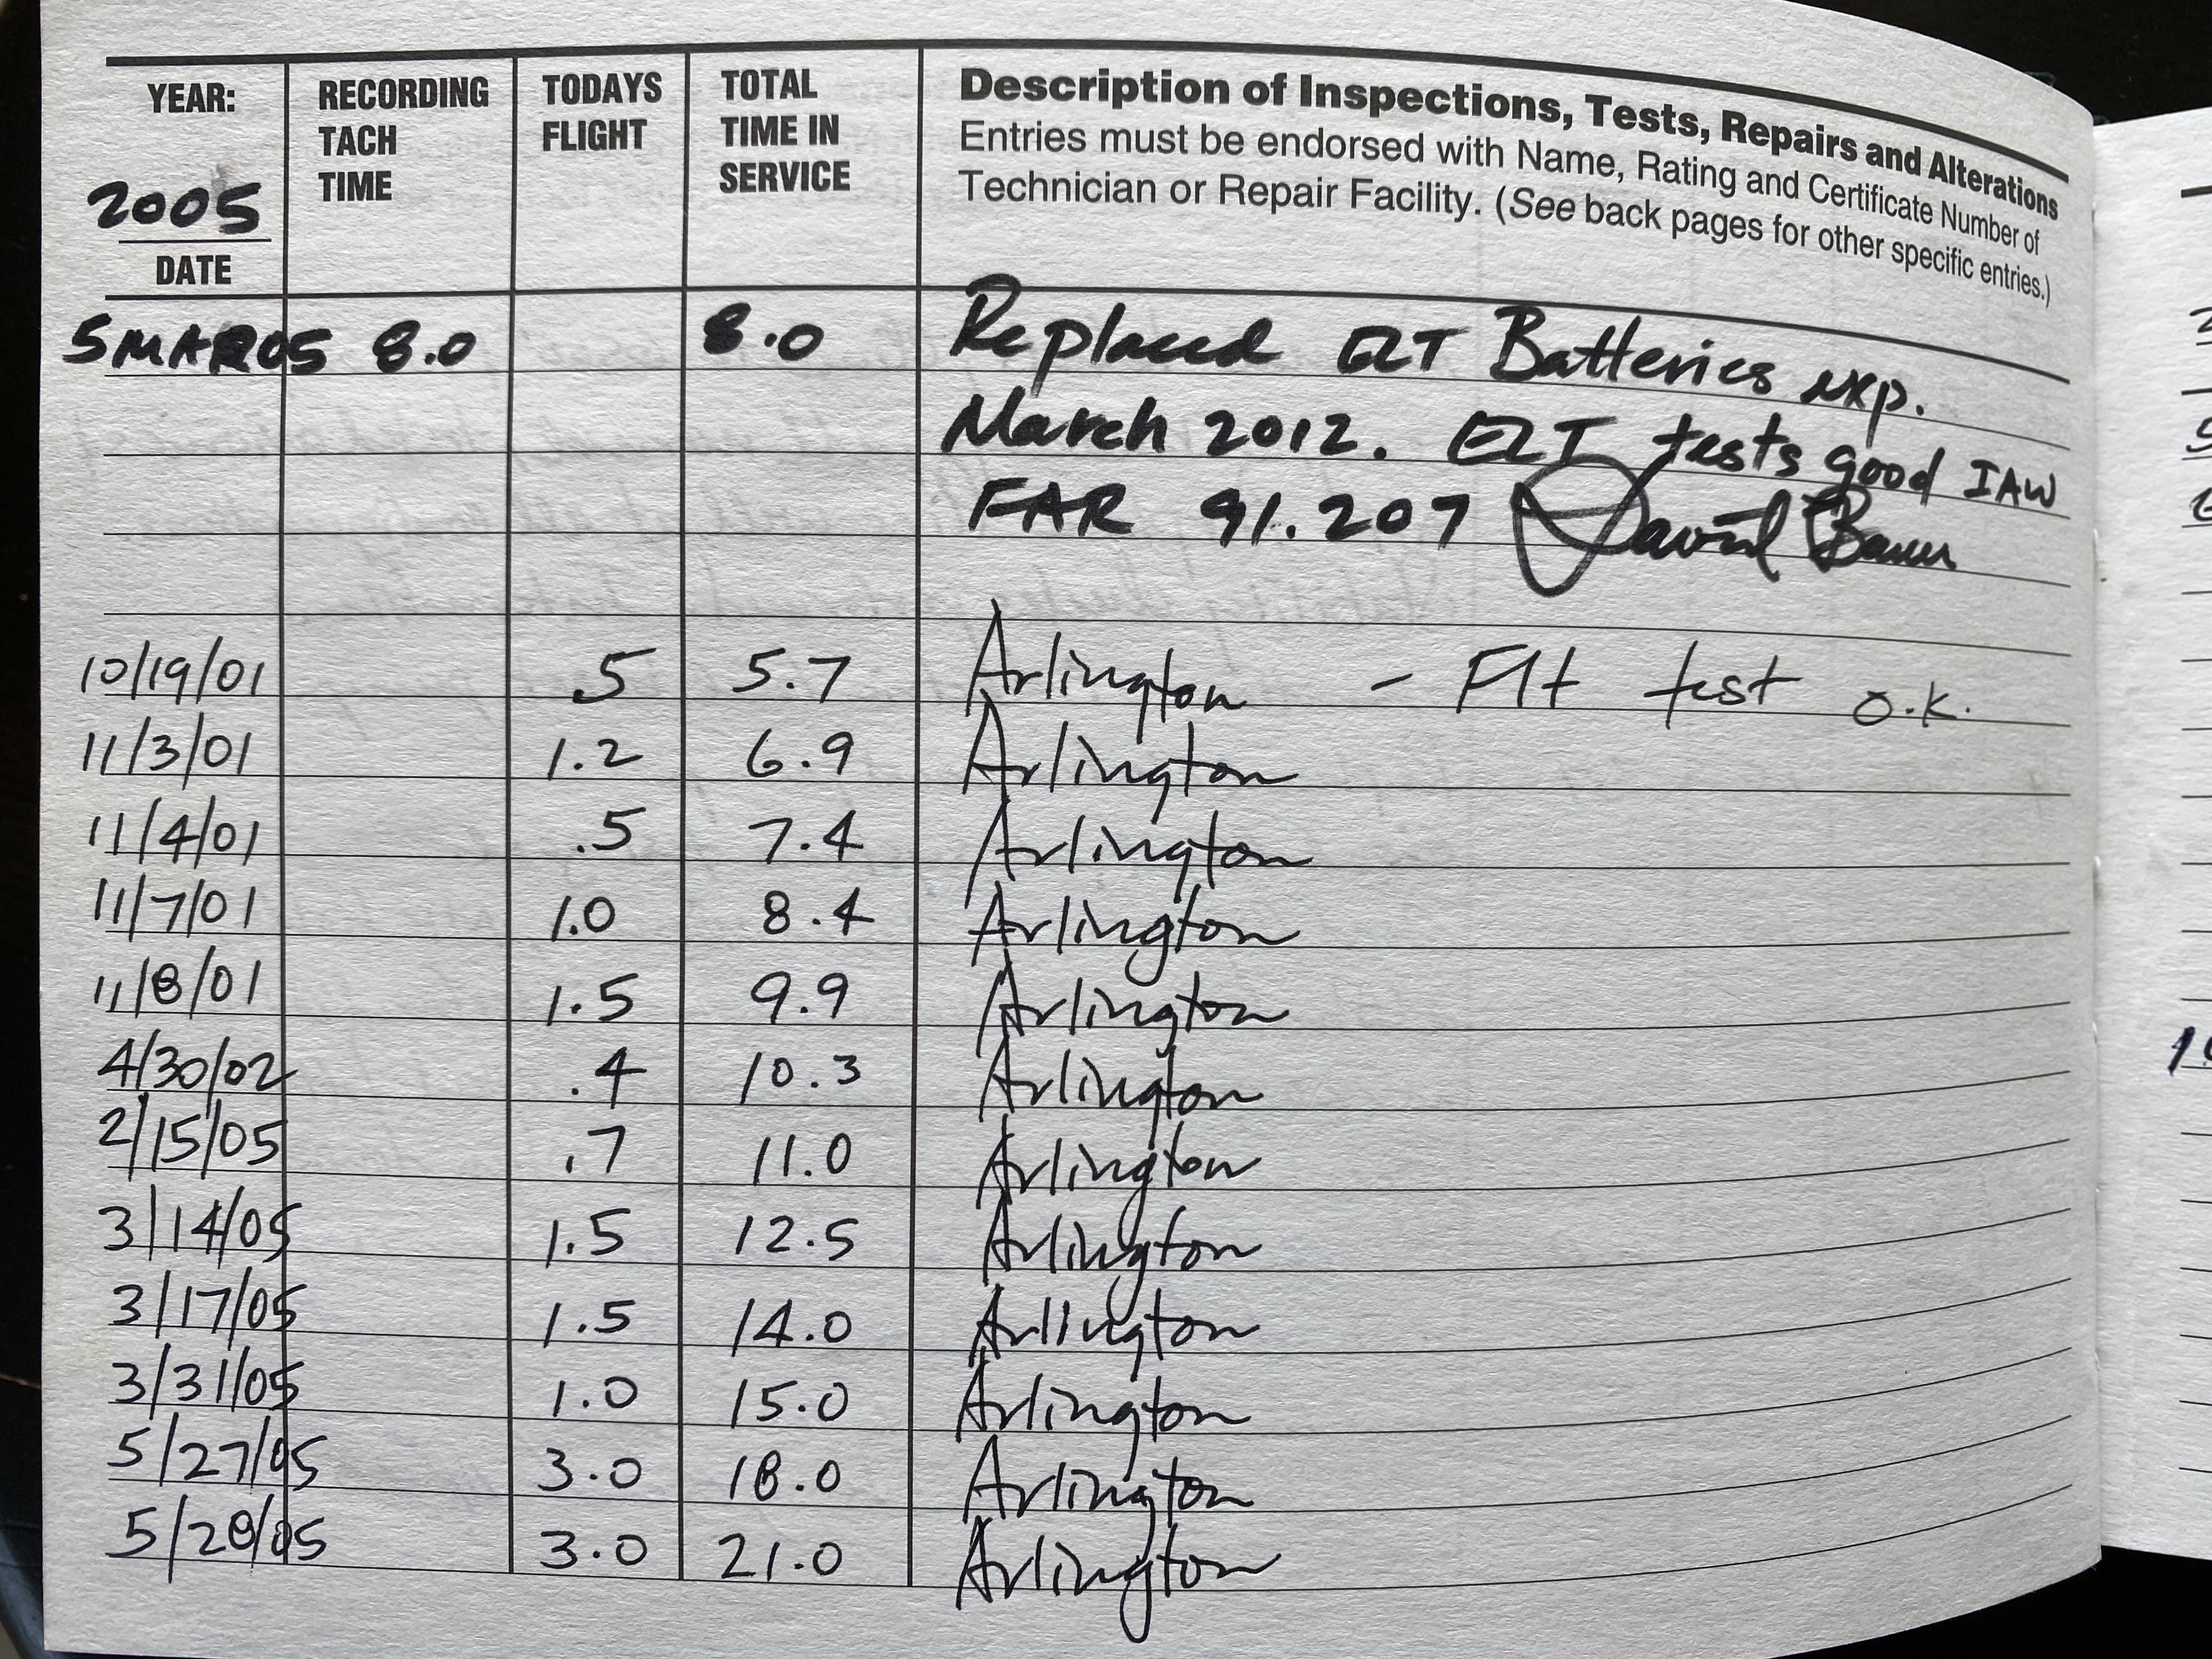 YEAR: RECORDING TACH TIME TODAYS FLIGHT TOTAL TIME IN SERVICE
2005
DATE
Description of Inspections, Tests, Repairs and Alterations
Entries must be endorsed with Name, Rating and Certificate Number of
Technician or Repair Facility. (See back pages for other specific entries.)
5MAR05 8.0 8.0 Replaced ELT Batteries exp.
March 2012. ELT tests good IAW
FAR 91.207 David
10/19/01 .5 5.7 Arlington - Flt test o.k.
11/3/01 1.2 6.9 Arlington
11/4/01 .5 7.4 Arlington
11/7/01 1.0 8.4 Arlington
11/8/01 1.5 9.9 Arlington
4/30/02 .4 10.3 Arlington
2/15/05 .7 11.0 Arlington
3/14/05 1.5 12.5 Arlington
3/17/05 1.5 14.0 Arlington
3/31/05 1.0 15.0 Arlington
5/27/05 3.0 18.0 Arlington
5/28/05 3.0 21.0 Arlington